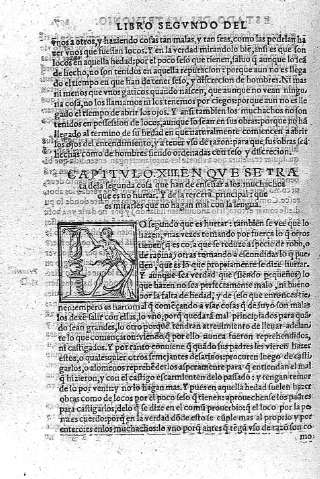 LIBRO SEGVNDO DEL
vnos a otros, y haziendo cosas tan malas, y tan feas, como las podrian ha
zer vnos que fuessan locos. Y en la verdad mirandolo biẽ, ansi es que son
locos en aquella hedad: por el poco seso que tienen, saluo q̃ aunque lo seã
de hecho, no son tenidos en aquella reputacion: porque aun no es llega
do el tiempo en que han de tener seso, y discrecion de hombres. Ni mas
ni menos que vnos gaticos quando nascen, que aunque no vean ningu
na cosa, no los llamamos ni los tenemos por ciegos: porque aun no es lle
gado el tiempo de abrir los ojos. Y ansi tambien los muchachos no son
tenidos en possession de locos, aunque lo sean en sus obras: porque no há
llegado al termino de su hedad en que naturalmente comiencen a abrir
los ojos del entendimiento, y a tener vso de razon: para que sus obras seã
hechas como de hombres siendo ordenadas con seso y discrecion.
CAPITVLO. XIII. EN QVE SE TRA
ta dela segunda cosa que han de enseñar a los muchachos
que es no hurtar, y de la tercera, principal: que
es mirarles que no hagan mal con la lengua.
LO segundo que es hurtar: tambien se vee que lo
hazen comunmente, vnas vezes tomando por fuerça lo q̃ otros
tienen; q̃ es co: a que se reduze a specie de robo, o
de rapina; y otras tomando a escondidas lo q̃ pue
den, que es lo que propriamente se dize hurtar.
Y aunque sea verdad que siendo pequeños lo
que hazen no sea perfectamente malo, ni bueno
por la falta de hedad, y de seso que entonces tie
nen: empero es harto mal q̃ començẽdo a vsar cosas q̃ de suyo son malas
los dexẽ salir con ellas, lo vno, porq̃ quedará mal principiados para quã
do sean grandes, lo otro porque tendran atreuimiento de lleuar adelan
te lo que començaron viendo q̃ por ello nunca fueron reprehendidos,
ni castigados. Y por tanto conuiene q̃ quãdo sus padres les vieren hazer
estos, o qualesquier otros semejantes desatinos procuren luego de casti
garlos, o alomenos reprehẽderlos asperamente para q̃ entiendan el mal
q̃ hizieron, y con el castigo escarmienten delo passado: y tengan temor
de lo por venir y no lo hagan mas. Y pues en aquella hedad suelen hazer
obras como de locos por el poco seso q̃ tienen: aprouechense los padres
para castigarlos, delo q̃ se dize en el comũ prouerbio: q̃ el loco por la pe
na es cuerdo: porq̃ en la verdad dõde esto se cũple mas al proprio y por
entero: es en los muchachos: lo vno porq̃ antes q̃ tẽgã vso de razõ son co
mo